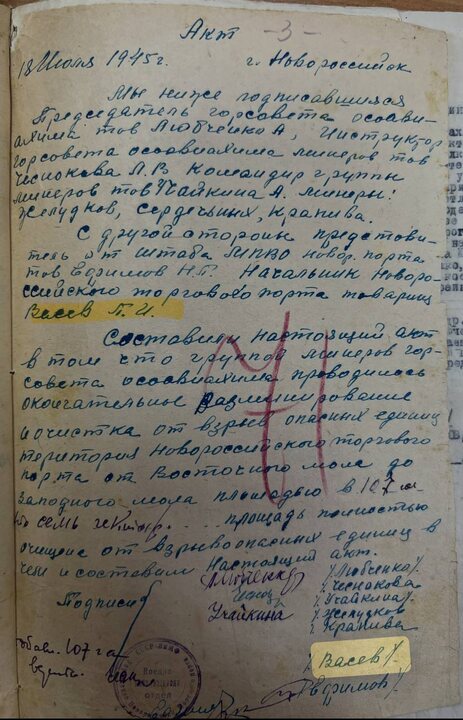 Акт -3-
18 Июля 1945г. г. Новороссийск
Мы ниже подписавшиеся
Председатель горсовета осоави-
ахима тов Любченко А, Инструктор
горсовета осоавиахима минеров тов
Чеснокова Л.В Командир группы
минеров тов Учайкина А. минеры:
Желудков, Сердечных, Крапива.
С другой стороны представи-
тель от штаба МПВО Новор. порта
тов Ефримов Н.Г. Начальник Новоро-
ссийского торгового порта товарищ
Васев П.И.
Составили настоящий акт
в том что группой минеров гор-
совета осоавиахима проводилось
окончательное разминирование
и очистка от взрыв опасных единиц
територия Новороссийского торгового
порта от Восточного мола до
Западного мола площадью в 107 га
сто семь гектар. . . . площадь полностью
очищено от взрывоопасных единиц в
чем и составили настоящий акт.
/Любченко/.
Чеснокова/.
Подписи Учайкина /Учайкина/.
/. Желудков
/. Крапива
107 га
Васев/.
/Ефримов/.